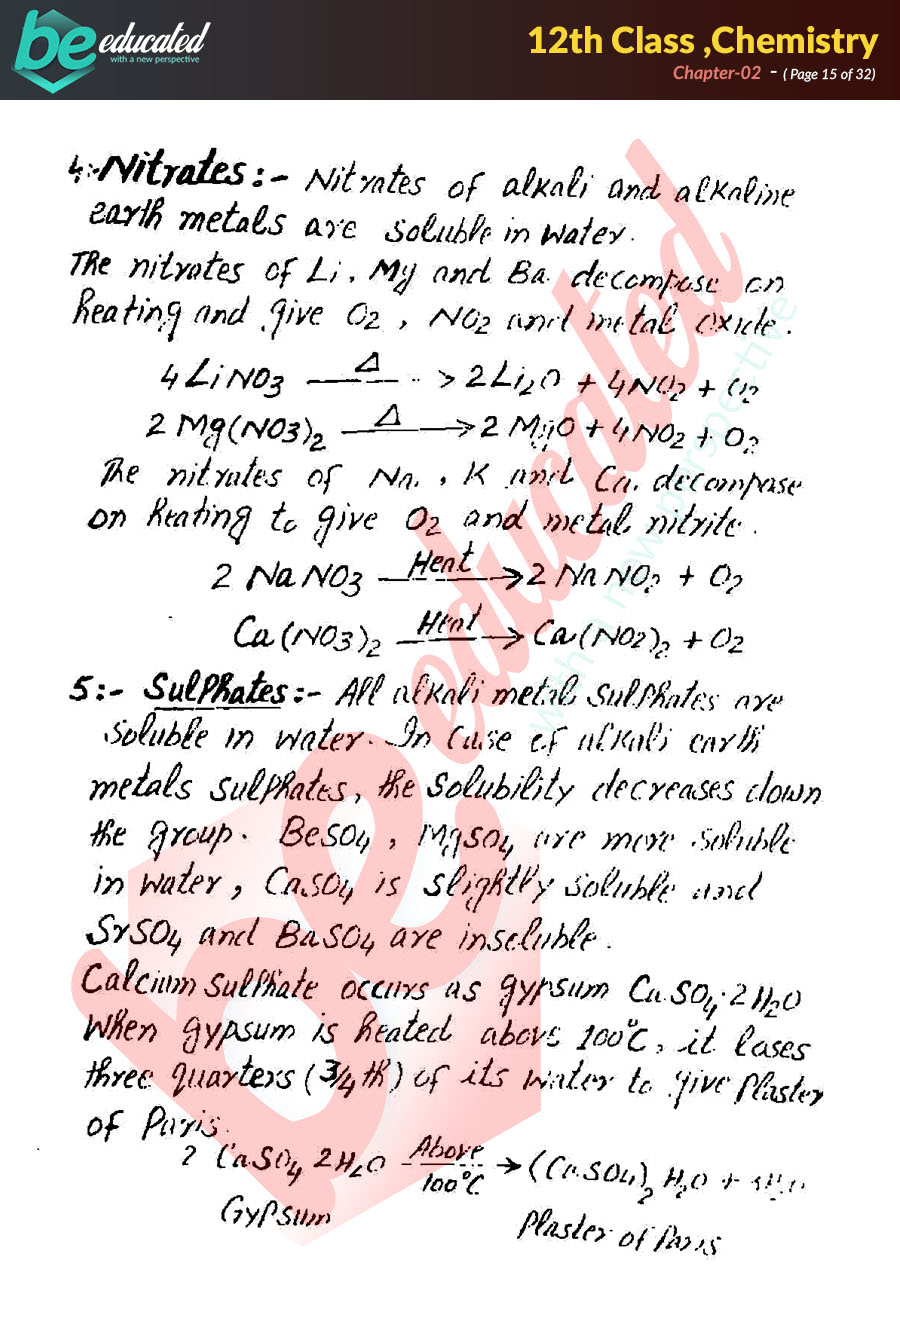 be educated
with a new perspective
12th Class ,Chemistry
Chapter-02 - ( Page 15 of 32)
4:- Nitrates :- Nitrates of alkali and alkaline
earth metals are soluble in water.
The nitrates of Li, Mg and Ba decompose on
heating and give O2 , NO2 and metal oxide.
4LiNO3 —Δ—> 2Li2O + 4NO2 + O2
2Mg(NO3)2 —Δ—> 2MgO + 4NO2 + O2
The nitrates of Na, K and Ca decompose
on heating to give O2 and metal nitrite.
2NaNO3 —Heat—> 2NaNO2 + O2
Ca(NO3)2 —Heat—> Ca(NO2)2 + O2
5:- Sulphates :- All alkali metals sulphates are
soluble in water. In case of alkali earth
metals sulphates, the solubility decreases down
the group. BeSO4 , MgSO4 are more soluble
in water, CaSO4 is slightly soluble and
SrSO4 and BaSO4 are insoluble.
Calcium sulphate occurs as gypsum CaSO4.2H2O
When gypsum is heated above 100°C, it loses
three quarters (3/4 th) of its water to give plaster
of Paris.
2 CaSO4 2H2O —Above 100°C—> (CaSO4)2 H2O +
Gypsum
Plaster of Paris
be educated
with a new perspective